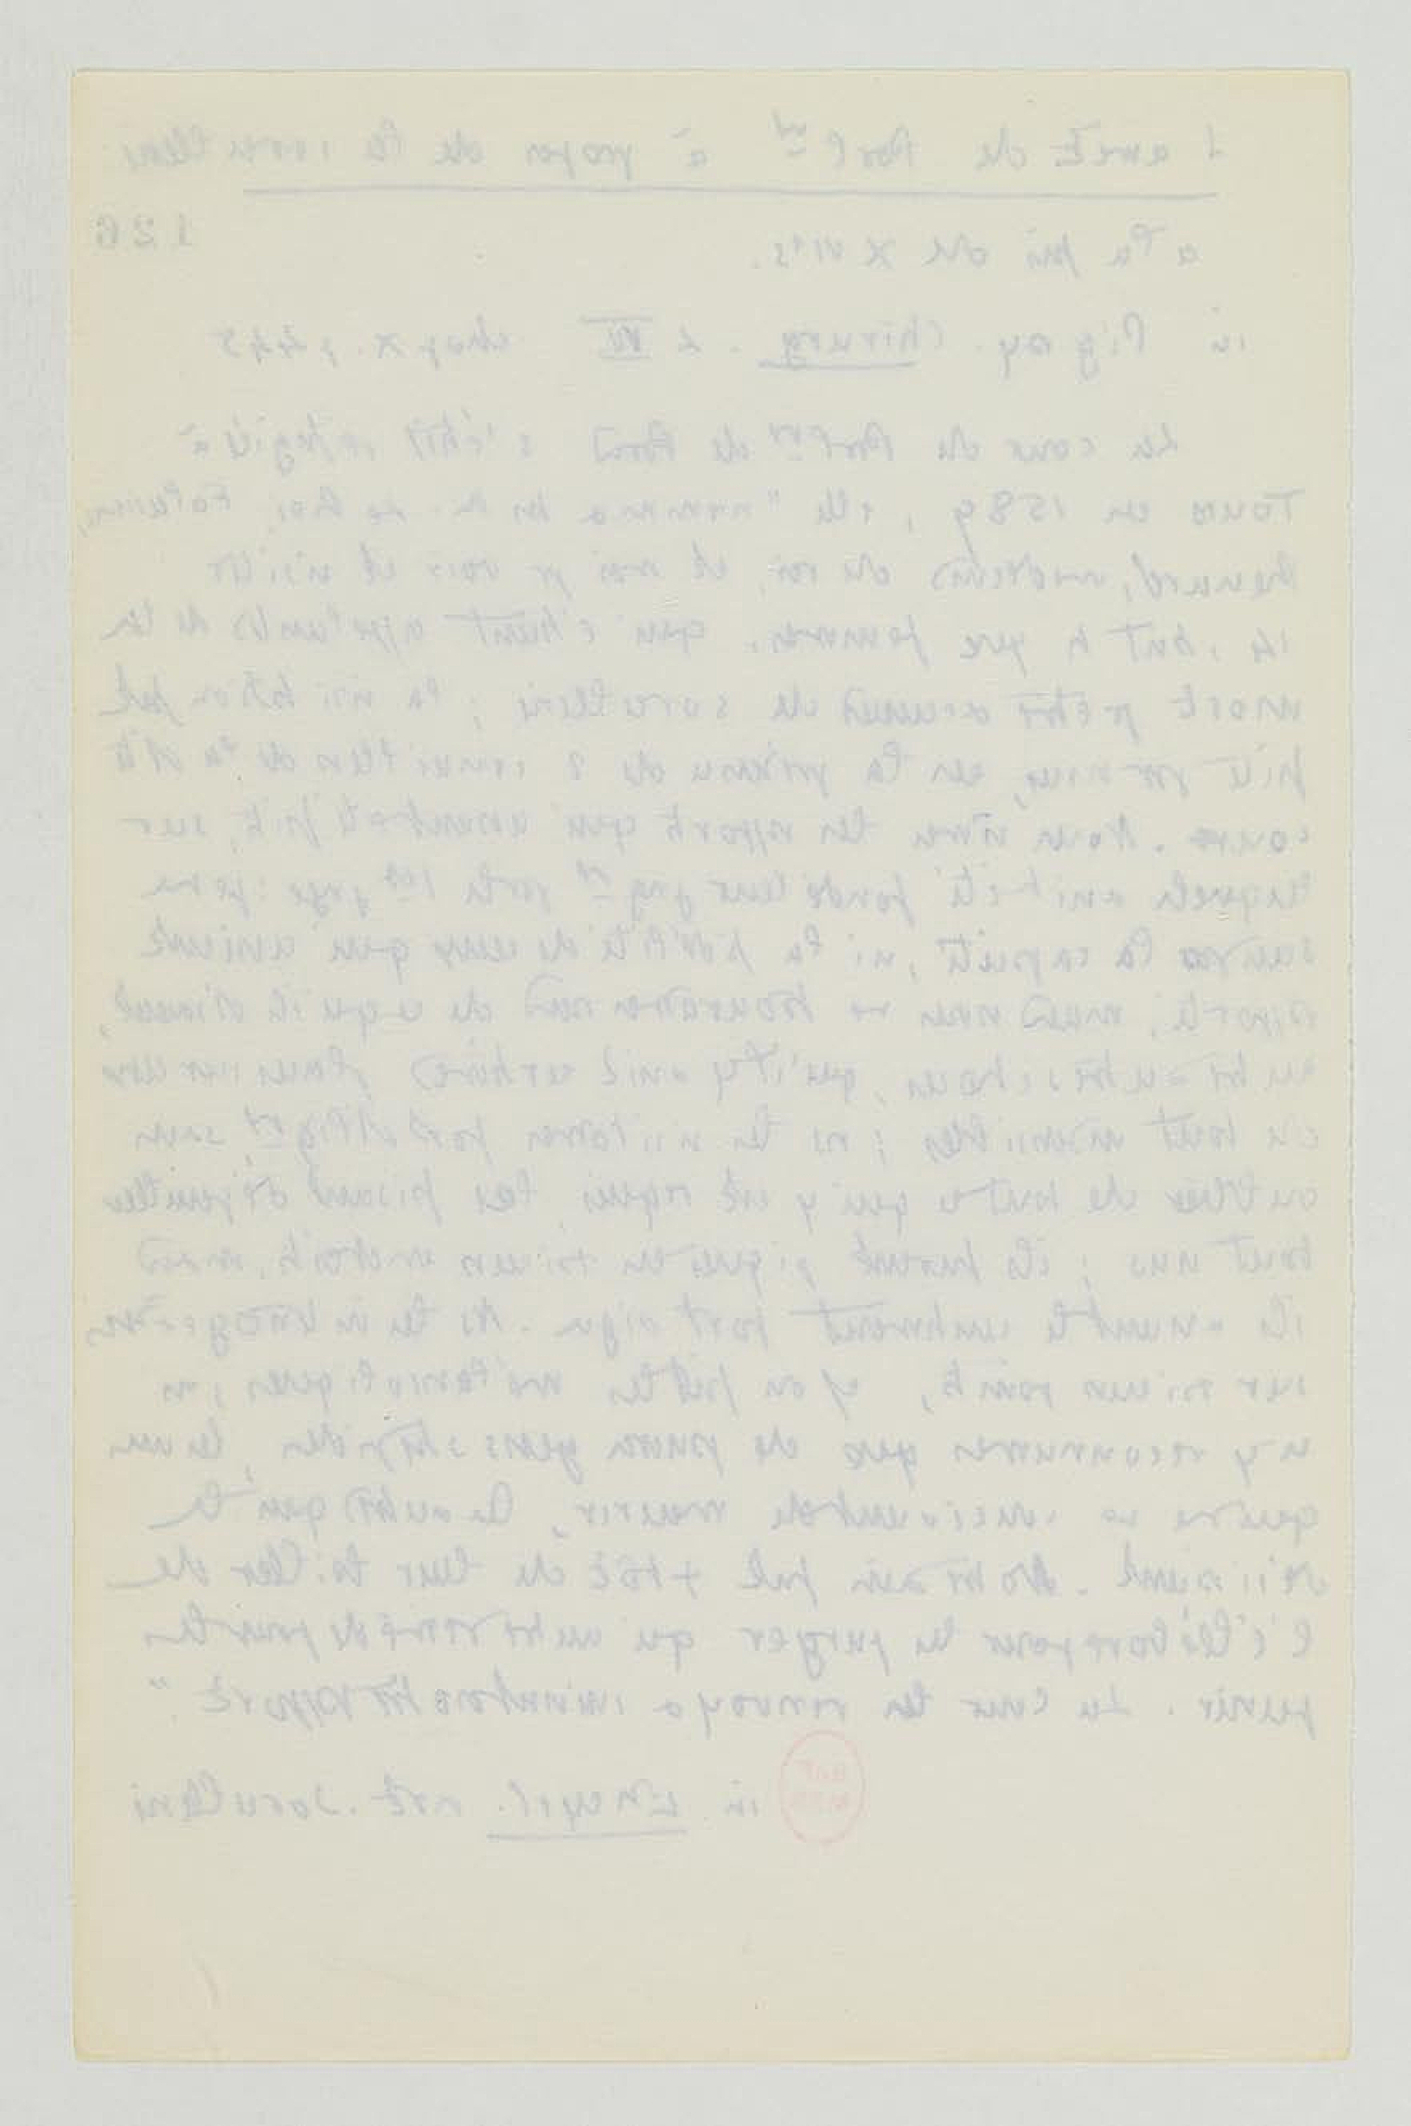 L'arrêt du Parl^nt à propos de la sorcellerie
126
à la fin du XVIe s.
in Pigray. Chirurg. L VII chap X, 445
La cour du Parl^nt de Paris s'était réfugiée à
Tours en 1589, elle "nomma MM. Le Roi, Falaiseau,
Renard, médecins du roi, et moi pr voir et visiter
14, tant h que femmes, qui étaient appelantes de la
mort pr être accusés de sorcellerie ; la visitation fut
faite par nous, en la présence de 2 conseillers de la dite
cour. Nous vîmes les rapports qui avaient été faits, sur
lesquels avait été fondé leur jug^nt par le 1er juge : je ne
sais pas la capacité, ni la fidélité de ceux qui avaient
rapporté, mais nous ne trouvâmes rien de ce qu'ils disaient,
entre autres choses, qu'il y avait certaines places sur eux
du tout insensibles ; ns les visitâmes fort diligt, sans
oublier de tout ce qui y est requis, les faisant dépouiller
tout nus ; ils furent piqués en plusieurs endroits, mais
ils avaient le sentiment fort aigu. Ns les interrogeâmes
sur plusieurs points, comme on fait les mélancoliques ; ns
n'y reconnûmes que de pauvres gens stupides, les uns
qui ne se souciaient de mourir, les autres qui le
désiraient. Notre avis fut plutôt de leur bailler de
l'ellébore pour les purger qu'autre remède pour les
punir. La Cour les renvoya suivant notre rapport."
in Encycl. art. Sorcellerie